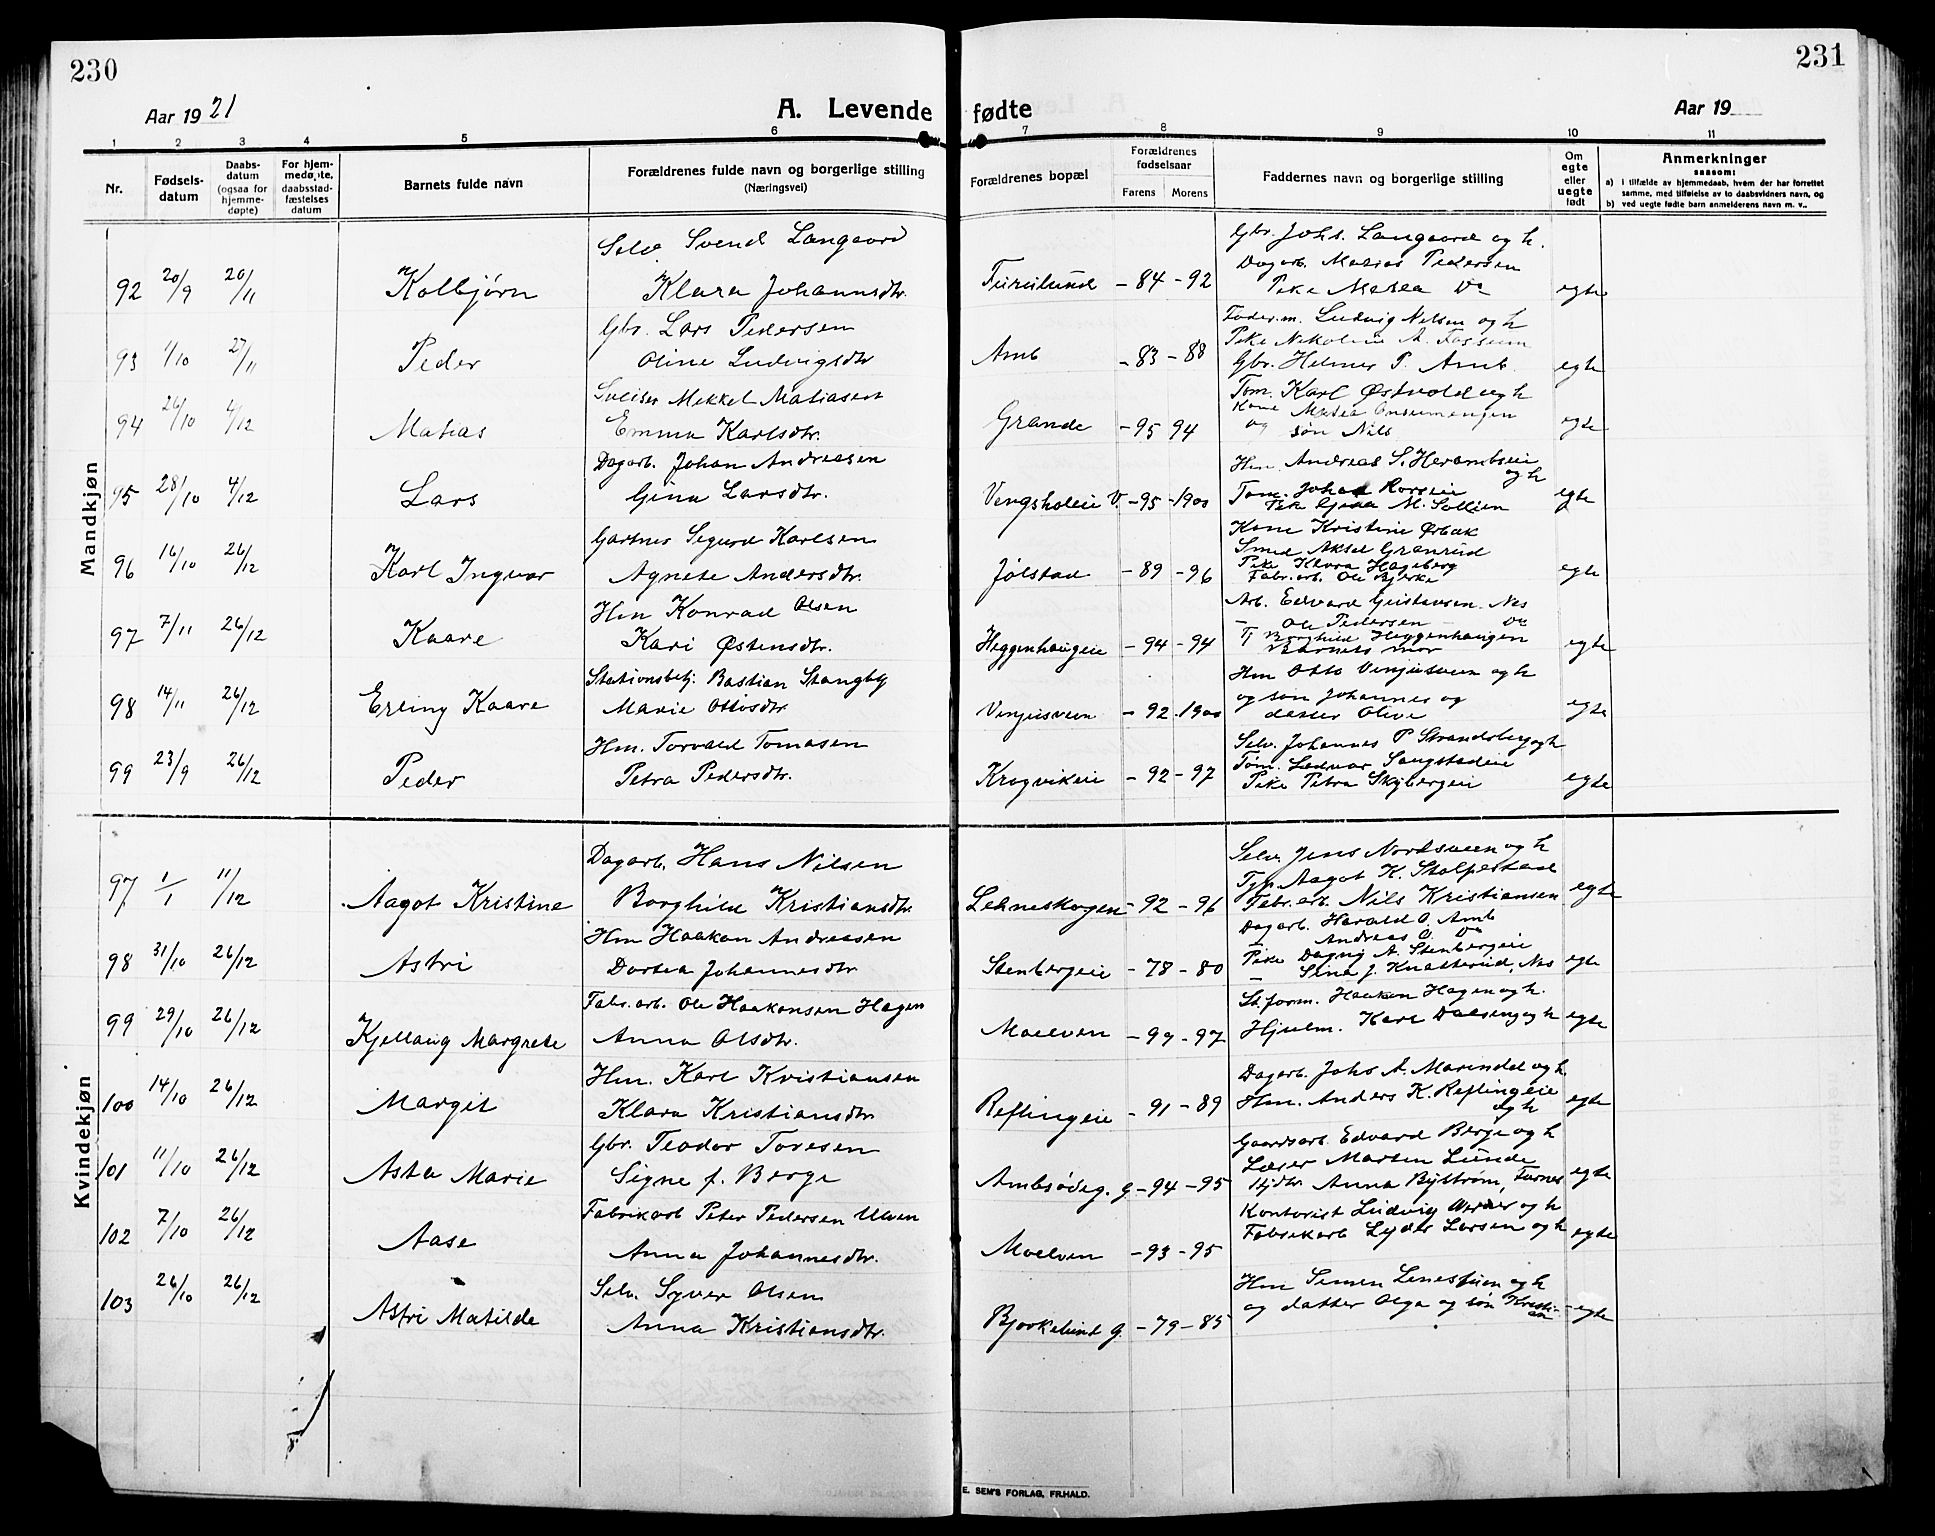 230
231
Aar 1921
A. Levende fødte
Aar 19
1 2 3 4 5 6 7 8 9 10 11
Nr.
Fødsels-
datum
Daabs-
datum
(ogsaa for
hjemme-
døpte)
For hjem-
medøpte,
daabsstad-
fæstelses
datum
Barnets fulde navn
Forældrenes fulde navn og borgerlige stilling
(Næringsvei)
Forældrenes bopæl
Forældrenes
fødselsaar
Farens Morens
Faddernes navn og borgerlige stilling
Om
egte
eller
uegte
født
Anmerkninger
saasom:
a) i tilfælde av hjemmedaab, hvem der har forrettet
samme, med tilføielse av to daabsvidners navn, og
b) ved uegte fødte barn anmelderens navn m. v..
Mandkjøn
Selv. Svend Langaard
Gbr. Johs. Langaard og h.
Dagarb. Matias Pedersen
92 20/9 20/11 Kolbjørn Klara Johannsdtr. Furulund -84 -92 Pike Matea Do egte
Gbr. Lars Pedersen
Foder.m. Ludvig Nelsen og h
Pike A. Fossum
93 1/10 27/11 Peder Oline Ludvigsdtr Amb -83 -88 Gbr. Helmer P. Amb. egte
Sveiser Mekkel Matiasen
Tøm. Karl Østvold og h
Kone
94 26/10 4/12 Matias Emma Karlsdtr. Grande -95 94 og søn Nils egte
Dagarb. Johan Andreasen
Hm. Andreas S. Herambseie
og h
95 28/10 4/12 Lars Gina Larsdtr. Vengsholeie V. -95 -1900 Tøm. Johan Rorseie egte
Pike Gina M. Sollien
Gartner Segurd Karlsen
Kone Kristine Ørbæk
Smed Aksel Granrud
96 16/10 26/12 Karl Ingvar Agnete Andersdtr. Jølstad -89 -96 Pike Klara Hageberg egte
Fabr. arb. Ole Bjerke
Hm Konrad Olsen
Arb. Edvard Gustavsen. Nes
- Ole Pedersen - Do
97 7/11 26/12 Kaare Kari Østensdtr. Heggenhaugeie -94 -94 Tj Borghild Heggenhaugen egte
Barnets mor
Stationsbetj. Bastian Stangby
Hm Otto Venjusveen og h
og søn Johannes og
98 14/11 26/12 Erling Kaare Marie Ottosdtr Venjusveen -92 -1900 datter Olive egte
Hm. Torvald Tomasen
Selv. Johannes P Strandsberg og h
Tøm. Ludvar Sangstadeie
99 23/9 26/12 Peder Petra Pedersdtr. Krogvikeie -92 -97 Pike Petra Skybergeie egte
Kvindekjøn
Dagarb. Hans Nilsen
Selv. Jens Nordsveen og h
Typ. Aagot K. Stolpestad
97 1/1 11/12 Aagot Kristine Borghild Kristiansdtr. Lehneskogen -92 -96 Fabr. arb. Nils Kristiansen egte
Hm Haakon Andreasen
Dagarb. Harald O. Amb
- Andreas O. Do
98 31/10 26/12 Astri Dortea Johannesdtr Stenbergeie -78 -80 Pike Dagny A. Stenbergeie egte
- Lina J. Knatterud, Nes
Fabr. arb. Ole Haakonsen Hagen
St.form. Haakon Hagen og h.
99 29/10 26/12 Kjellaug Margrete Anna Olsdtr. Moelven -99 -97 Hjulm. Karl Dalseng og h egte
Hm. Karl Kristiansen
Dagarb. Johs A. Marindal og h.
100 14/10 26/12 Margit Klara Kristiansdtr. Reflingeie -91 -89 Hm. Anders K. Reflingeie egte
og h
Gbr. Teodor Toresen
Gaardsarb. Edvard Berge og h
Læser Marten Lunde
101 11/10 26/12 Asta Marie Signe f. Berge Ambsødeg. G -94 -95 Hjdtr. Anna Byström, Furnes egte
Fabrikarb Peter Pedersen Ulven
Kontorist Ludvig og h
102 7/10 26/12 Aase Anna Johannesdtr. Moelven -93 -95 Fabrikarb Lyder Larsen og h egte
Selv. Syver Olsen
Hm Semen Lenestuen og h
103 26/10 26/12 Astri Matilde Anna Kristiansdtr. Bjørkelund G. -79 -85 og datter Olga og søn Kristi-
an egte
E. SEM'S FORLAG, FR.HALD.